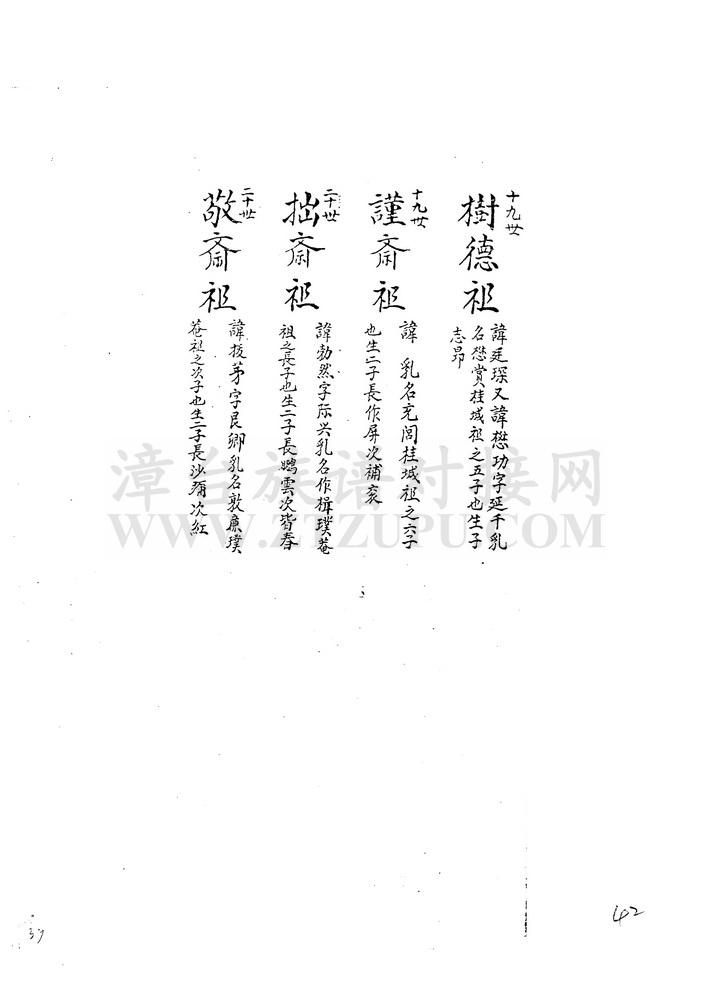 十九世
樹德祖
諱廷琛又諱懋功字延千乳
名懋賞桂域祖之五子也生子
志昂
十九世
謹斎祖
諱 乳名充閭桂域祖之六子
也生二子長作屏次補衮
二十世
拙斎祖
諱勃然字际兴乳名作楫璞菴
祖之長子也生二子長鴻雲次皆春
二十世
敬斎祖
諱拔茅字艮卿乳名敦廉璞
菴祖之次子也生二子長沙彌次紅
漳台族谱对接网
WWW.ZTZUPU.COM
42
37